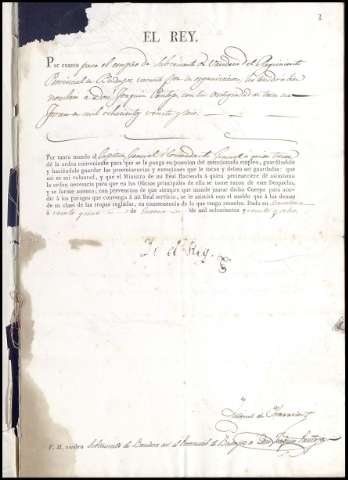 EL REY.
Por cuanto para el empleo de Subteniente de Bandera del Regimiento
Provincial de Badajoz
nombrar a Don Joaquin
mil ochocientos veinte y
Por tanto mando al Capitan General ó Comandante General a quien tocare
dé la órden conveniente para que se le ponga en posesion del mencionado empleo, guardándole
y haciéndole guardar las preeminencias y exenciones que le tocan y deben ser guardadas: que
así es mi voluntad, y que el Ministro de mi Real Hacienda á quien perteneciere dé asimismo
la órden necesaria para que en los Oficios principales de ella se tome razon de este Despacho,
y se forme asiento; con prevencion de que siempre que mande juntar dicho Cuerpo para acudir
á los parages que convenga á mi Real servicio, se le asistirá con el sueldo que á los demas
de su clase de las tropas regladas, en consecuencia de lo que tengo resuelto. Dado en
á veinte de de mil ochocientos veinte y ocho.
Yo el Rey
Miguel de
V. M. nombra Subteniente de Bandera en el Provincial de Badajoz a Don Joaquin